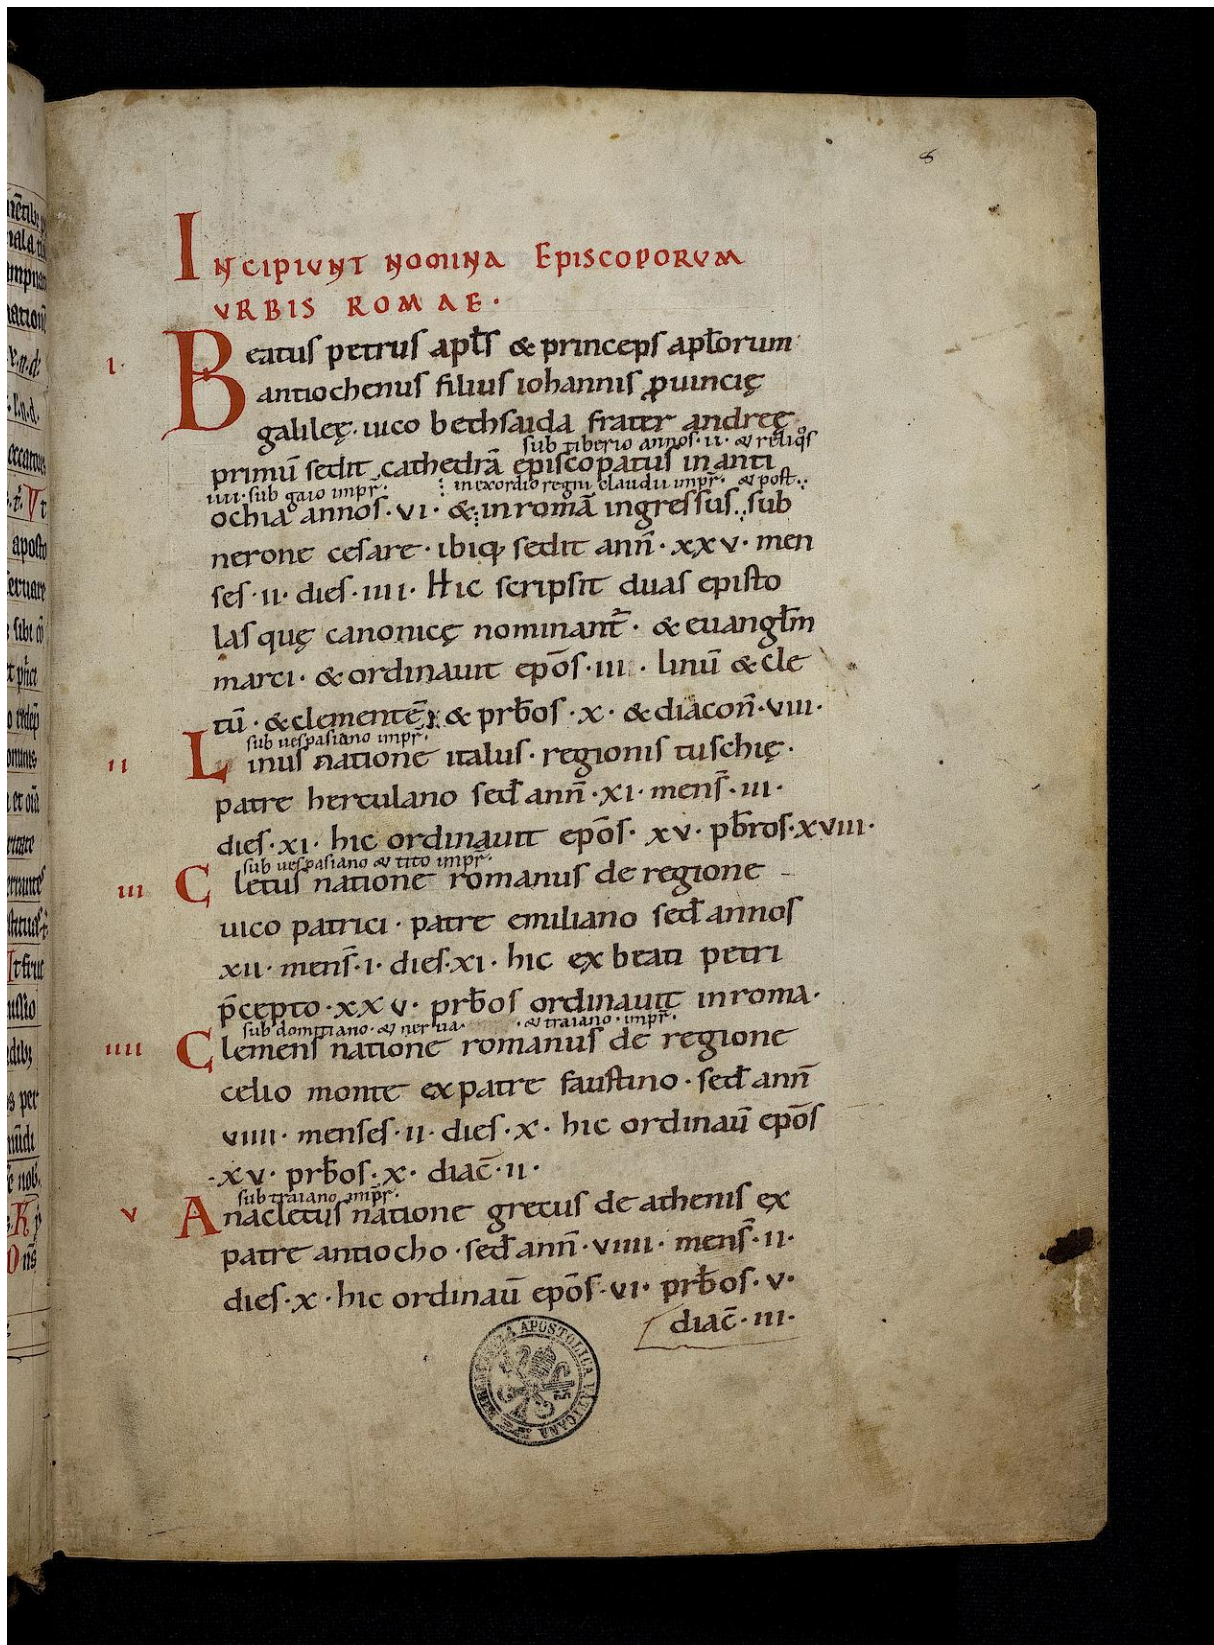 8
INCIPIUNT NOMINA EPISCOPORUM
URBIS ROMAE.
I. Beatus petrus apl̄s & princeps apl̄orum
antiochenus filius iohannis ꝓuincię
galileę. uico bethsaida frater andreę.
sub tiberio annos. II. & reliqͦs
primū sedit cathedrā episcopatus in anti
IIII. sub gaio imp̄r. in exordio regni claudii imp̄r. & post.
ochia annos. VI. & in romā ingressus. sub
nerone cesare. ibiq; sedit ann̄. XXV. men
ses. II. dies. IIII. Hic scripsit duas episto
las quę canonicę nominant̄. & euangl̄m
marci. & ordinauit ep̄os. III. linū & cle
tū. & clementē. & prb̄os. X. & diacon̄. VIII.
sub uespasiano imp̄r.
II Linus natione italus. regionis tuschię.
patre herculano sed̄ ann̄. XI. mens̄. III.
dies. XI. hic ordinauit ep̄os. XV. pb̄ros. XVIII.
sub uespasiano & tito imp̄r.
III Cletus natione romanus de regione
uico patrici. patre emiliano sed̄ annos
XII. mens̄. I. dies. XI. hic ex beati petri
p̄cepto. XXV. prb̄os ordinauit in roma.
sub domitiano. & nerua. & traiano. imp̄r.
IIII Clemens natione romanus de regione
celio monte ex patre faustino. sed̄ ann̄
VIIII. menses. II. dies. X. hic ordinaū ep̄os
XV. prb̄os. X. diac̄. II.
sub traiano imp̄r.
V Anacletus natione grecus de athenis ex
patre antiocho. sed̄ ann̄. VIIII. mens̄. II.
dies. X. hic ordinaū ep̄os. VI. prb̄os. V.
diac̄. III.
APOSTOLICA VATICANA